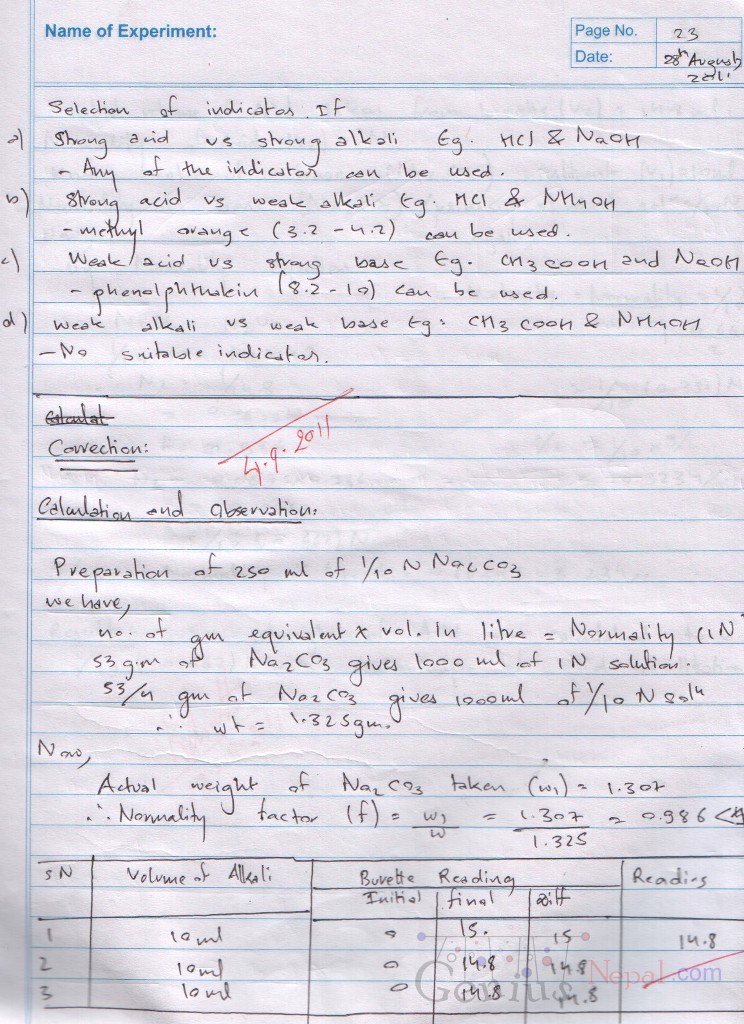 Name of Experiment:
Page No. 23
Date: 28th August 2011
Selection of indicator. If
a) Strong acid vs strong alkali Eg. HCl & NaOH
- Any of the indicator can be used.
b) Strong acid vs weak alkali Eg. HCl & NH4OH
- methyl orange (3.2 - 4.2) can be used.
c) Weak acid vs strong base Eg. CH3COOH and NaOH
- phenolphthalein (8.2 - 10) can be used.
d) weak alkali vs weak base Eg: CH3COOH & NH4OH
- No suitable indicator.
Calculat
Correction:
4.9.2011
Calculation and Observation:
Preparation of 250 ml of 1/10 N Na2CO3
we have,
no. of gm equivalent x vol. In litre = Normality (1N
53 gm of Na2CO3 gives 1000 ml of 1N solution.
53/4 gm of Na2CO3 gives 1000ml of 1/10 N soln
∴ wt = 1.325gm.
Now,
Actual weight of Na2CO3 taken (w1) = 1.307
∴ Normality factor (f) = w1/w = 1.307/1.325 = 0.986 <1
SN Volume of Alkali Burette Reading Reading
Initial final diff
1 10ml 0 15. 15 14.8
2 10ml 0 14.8 14.8
3 10ml 0 14.8 14.8
Genius Nepal.com